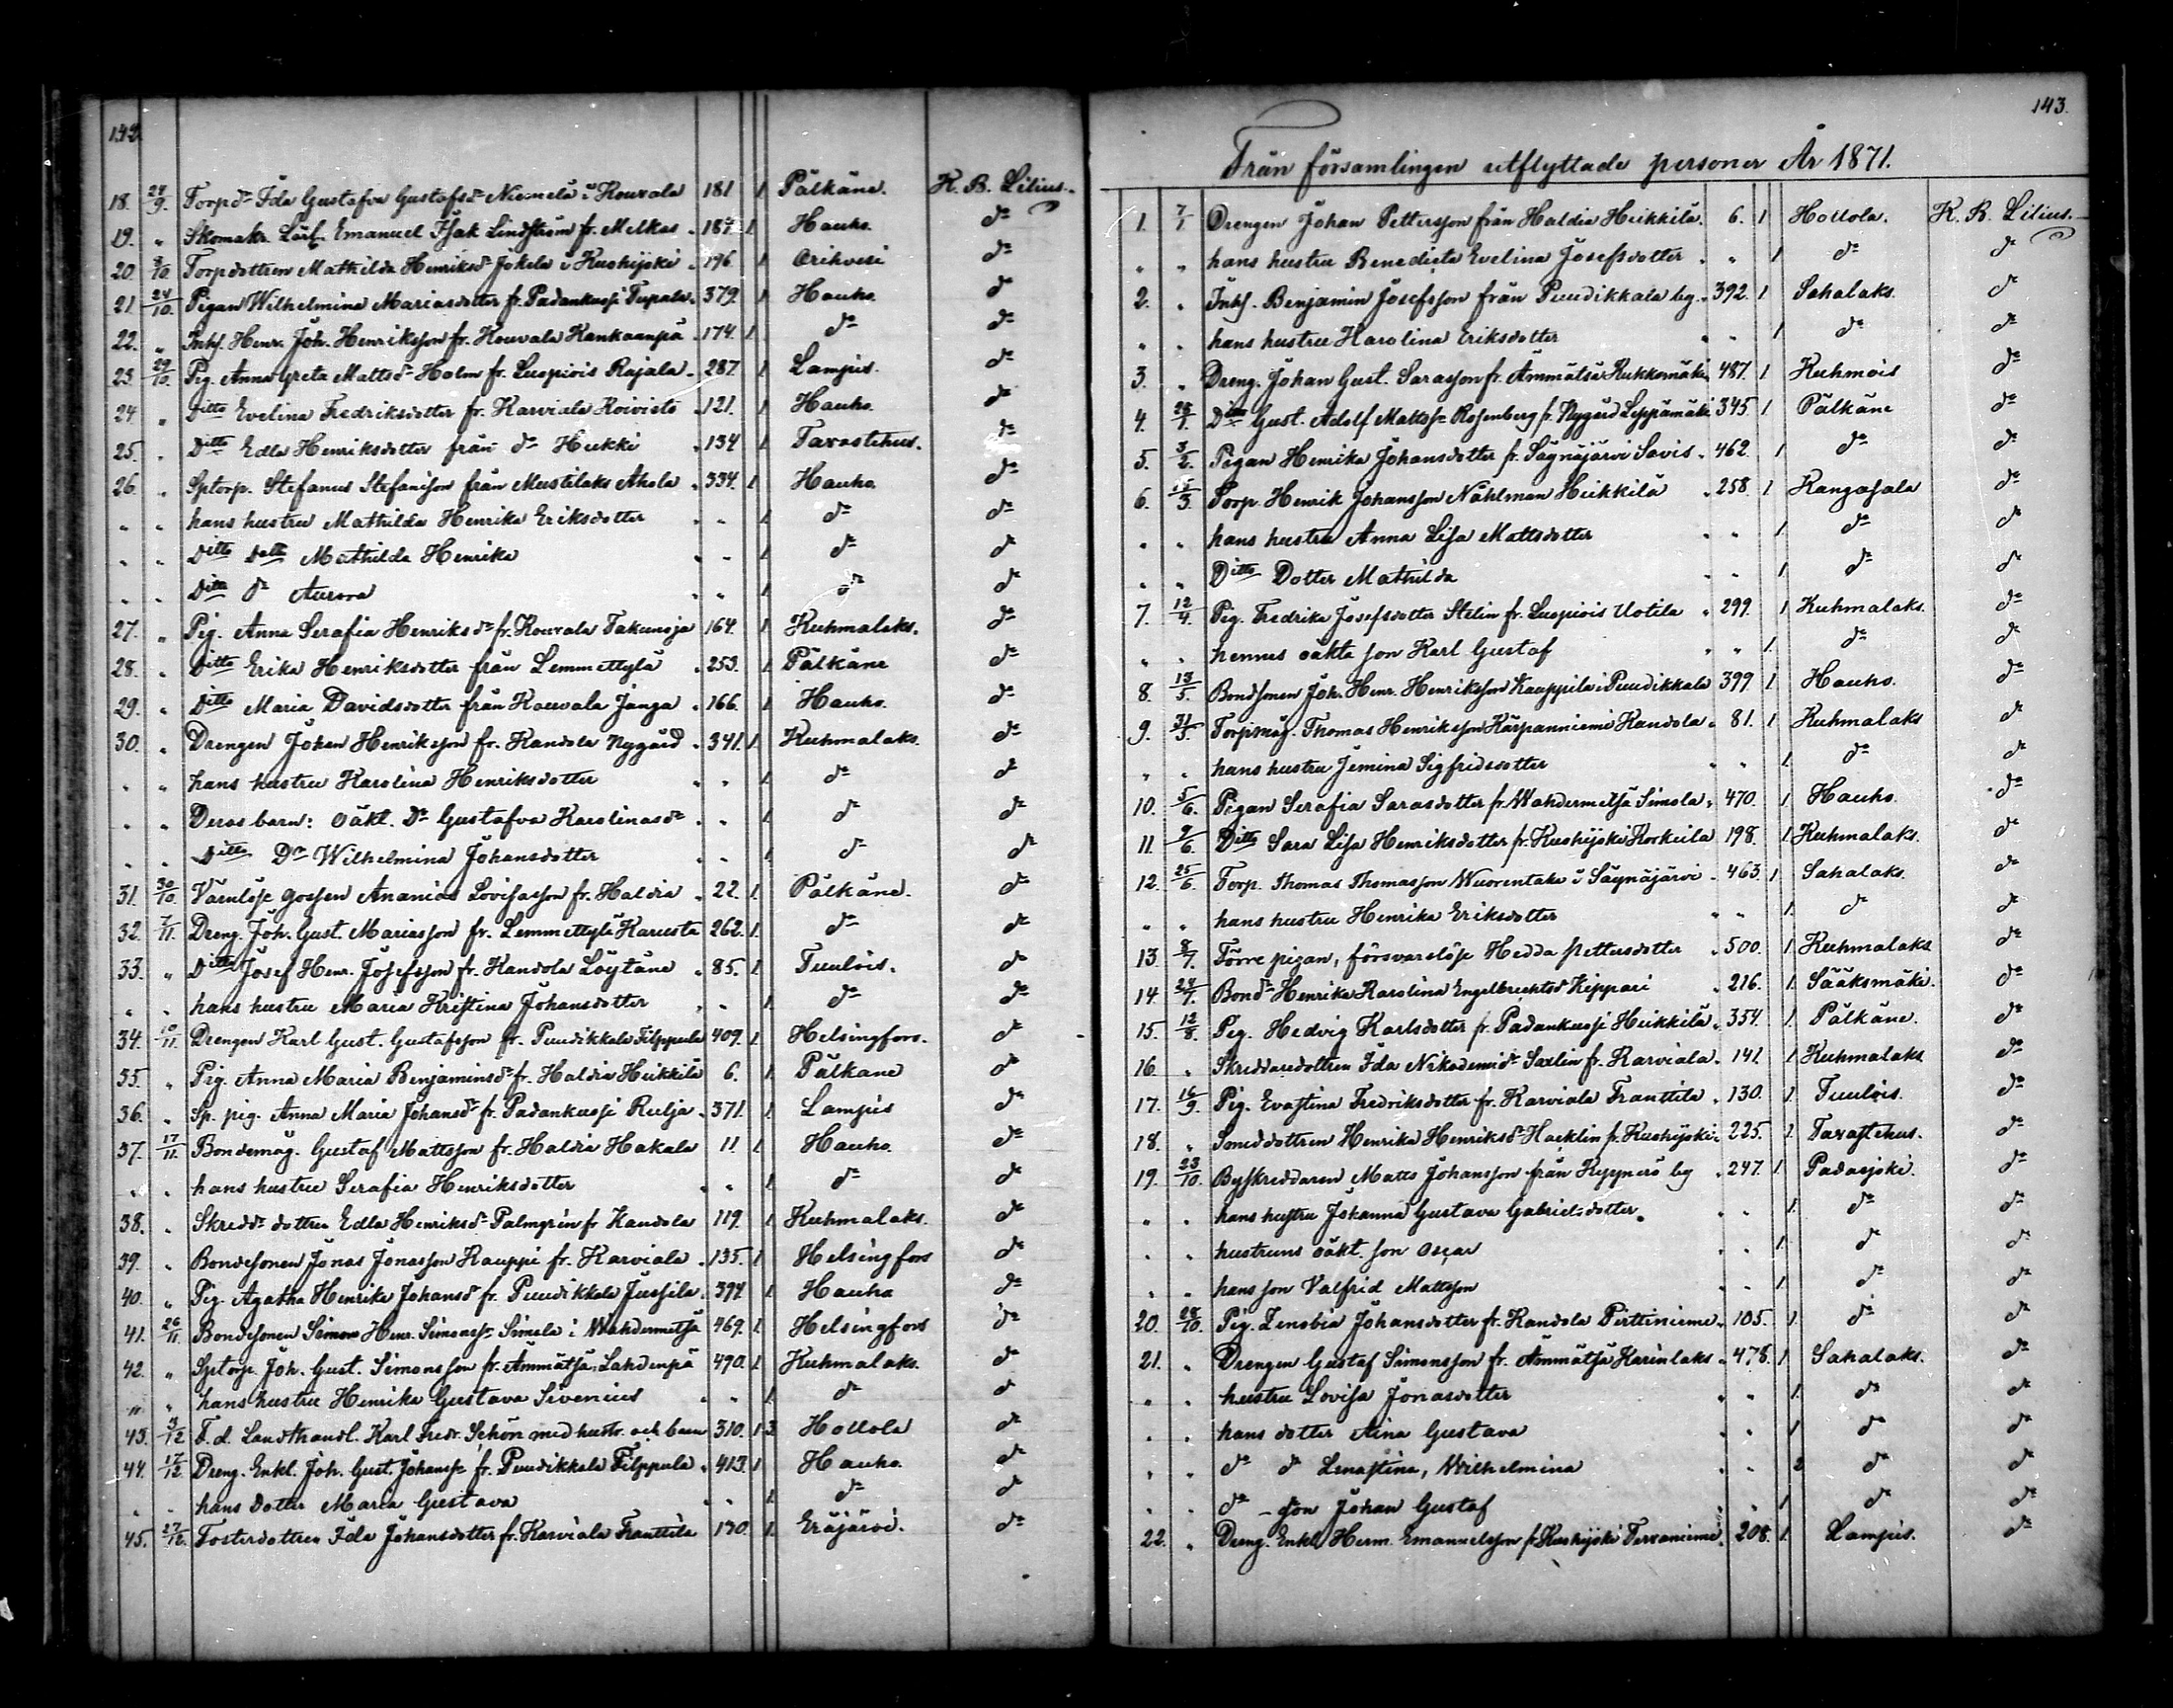 142.
18. 24/9. Torpdr Ida Gustafva Gustafsdr Niemelä i Kouvala 181 1 Pälkäne. K. B. Lilius.
19. " Skomakr Lärl. Emanuel Isak Lindström fr. Melkas " 187 1 Hauho. do
20. 8/10 Torpdottren Mathilda Henriksdr Jokela i Kuohijoki " 196 1 Orihvesi do
21. 24/10. Pigan Wilhelmina Mariasdotter fr. Padankoski Tupala " 379. 1 Hauho. do
22. " Inhs. Henr. Joh. Henriksson fr. Kouvala Kankaanpä " 174 1 do do
23. 29/10. Pig. Anna Greta Mattsdr Holm fr. Luopiois Rajala " 287 1 Lampis. do
24 " Ditto Evelina Fredriksdotter fr. Karviala Koivisto " 121. 1 Hauho. do
25. " Ditto Edla Henriksdotter från do Heikki " 134 1 Tavastehus. do
26. " Sptorp. Stefanus Stefansson från Mustilaks Ahola " 334. 1 Hauho do
" " hans hustru Mathilda Henrika Eriksdotter " " 1 do do
" " Ditto Dottr Mathilda Henrika " " 1 do do
" " Ditto do Aurora " " 1 do do
27. " Pig. Anna Serafia Henriksdr fr. Kouvala Takunoja 164. 1 Kuhmalaks. do
28. " Ditto Erika Henriksdotter från Lemmettylä " 253. 1 Pälkäne do
29. " Ditto Maria Davidsdotter från Kouvala Janga " 166. 1 Hauho. do
30. " Drengen Johan Henriksson fr. Kandola Nygård " 341. 1. Kuhmalaks. do
" " hans hustru Karolina Henriksdotter " " 1 do do
" " Deras barn: oäkt. Dr Gustafva Karolinasdr " " 1 do do
" " Ditto Dr Wilhelmina Johansdotter " " 1 do do
31. 30/10. Värnlöse gossen Ananias Lovisasson fr. Haldia " 22. 1. Pälkäne. do
32. 7/11. Dreng. Joh. Gust. Mariasson fr. Lemmettylä Karusta 262. 1. do do
33. " Ditto Josef Henr. Josefsson fr. Kandola Löytäne " 85. 1 Tuulois. do
" " hans hustru Maria Kristina Johansdotter " " 1. do do
34. 10/11. Drengen Karl Gust. Gustafsson fr. Puudikkala Filppula 409. 1. Helsingfors. do
35. " Pig. Anna Maria Benjaminsdr fr. Haldia Heikkilä 6. 1. Pälkäne do
36. " Sp. pig. Anna Maria Johansdr fr. Padankoski Rulja " 371. 1 Lampis do
37. 17/11. Bondemåg. Gustaf Mattsson fr. Haldia Hakala 11 1 Hauho do
" " hans hustru Serafia Henriksdotter " " 1 do do
38. " Skreddr dottren Edla Henriksdr Palmgrén fr Kandola 119. 1 Kuhmalaks. do
39. " Bondesonen Jonas Jonasson Kauppi fr. Karviala " 135. 1 Helsingfors do
40. " Pig. Agatha Henrika Johansdr fr. Puudikkala Jussila 394 1 Hauho do
41. 26/11. Bondesonen Simon Henr. Simonss. Simola i Wahdermetsä 469. 1. Helsingfors do
42. " Sptorp. Joh. Gust. Simonsson fr. Ämmätsä Lahdenpä 490. 1 Kuhmalaks. do
" " hans hustru Henrika Gustava Sivenius " " 1. do do
43. 3/12 F. d. Landthandl. Karl Fredr. Schön med hustr. och barn 310. 1 3 Hollola do
44. 17/12 Dreng. Enkl. Joh. Gust. Johanss. fr. Puudikkala Filppula " 413. 1 Hauho do
" " hans dotter Maria Gustava " " 1. do do
45. 27/12. Fosterdottren Ida Johansdotter fr. Karviala Franttila 130. 1. Eräjärvi. do
143.
Från församlingen utflyttade personer År 1871.
1. 7/1 Drengen Johan Pettersson från Haldia Heikkilä. 6. 1 Hollola. K. B. Lilius.
" " hans hustru Benedicta Evelina Josefsdotter " " 1 do do
2. " Inhs. Benjamin Josefsson från Puudikkala by. " 392. 1 Sahalaks. do
" " hans hustru Karolina Eriksdotter " " 1 do do
3. " Dreng. Johan Gust. Sarasson fr. Ämmätsä Kukkomäki 487. 1 Kuhmois do
4. 28/1. Ditto Gust. Adolf Mattss. Rosenberg fr. Nygård Leppämäki 345 1 Pälkäne do
5. 3/2. Pigan Henrika Johansdotter fr. Säynäjärvi Savis " 462. 1 do do
6. 15/3. Torp. Henrik Johansson Nåhlman Heikkilä " 258. 1 Kangasala do
" " hans hustru Anna Lisa Mattsdotter " " 1 do do
" " Ditto Dotter Mathilda " " 1 do do
7. 12/4. Pig. Fredrika Josefsdotter Stelin fr. Luopiois Uotila " 299. 1 Kuhmalaks. do
" " hennes oäkta son Karl Gustaf " " 1. do do
8. 13/5. Bondsonen Joh. Henr. Henriksson Kauppila i Puudikkala 399 1 Hauho. do
9. 31/5. Torpmåg. Thomas Henriksson Kärpänniemi Kandola " 81. 1 Kuhmalaks do
" " hans hustru Jemina Sigfridsdotter " " 1. do do
10. 5/6. Pigan Serafia Sarasdotter fr. Wahdermetsä Simola " 470. 1 Hauho. do
11. 9/6. Ditto Sara Lisa Henriksdotter fr. Kuohijoki Korkiila 198. 1 Kuhmalaks. do
12. 25/6. Torp. Thomas Thomasson Wuorentaka i Säynäjärvi " 463. 1 Sahalaks. do
" " hans hustru Henrika Eriksdotter " " 1. do do
13 8/7. Förre pigan, försvarslöse Hedda Pettersdotter " 500. 1 Kuhmalaks do
14. 24/7. Bonddr Henrika Karolina Engelbrechtsdr Kippari " 216. 1. Sääksmäki. do
15. 12/8. Pig. Hedvig Karlsdotter fr. Padankoski Heikkilä " 354. 1. Pälkäne. do
16. " Skreddaredottren Ida Nikodemidr Saxlin fr. Karviala. 141. 1 Kuhmalaks do
17. 16/9. Pig. Evastina Fredriksdotter fr. Karviala Franttila " 130. 1. Tuulois. do
18. " Smeddottren Henrika Henriksdr Hacklin fr. Kuohijoki. 225. 1. Tavastehus. do
19. 23/10. Byskreddaren Matts Johansson från Kyynärö by " 247. 1. Padasjoki. do
" " hans hustru Johanna Gustava Gabrielsdotter " " 1. do do
" " hustruns oäkt. son Oscar " " 1. do do
" " hans son Valfrid Mattsson " " 1. do do
20. 28/10. Pig. Zenobia Johansdotter fr. Kandola Pirttiniemi " 105. 1. do do
21. " Drengen Gustaf Simonsson fr. Ämmätsä Karinlaks " 478. 1 Sahalaks. do
" " hustru Lovisa Jonasdotter " " 1. do do
" " hans dotter Aina Gustava " " 1 do do
" " do do Lenastina, Wilhelmina " " 2 do do
" " do - son Johan Gustaf " " 1 do do
22. " Dreng. Enkl. Herm. Emanuelsson fr. Kuohijoki Tervaniemi 208. 1. Lampis. do